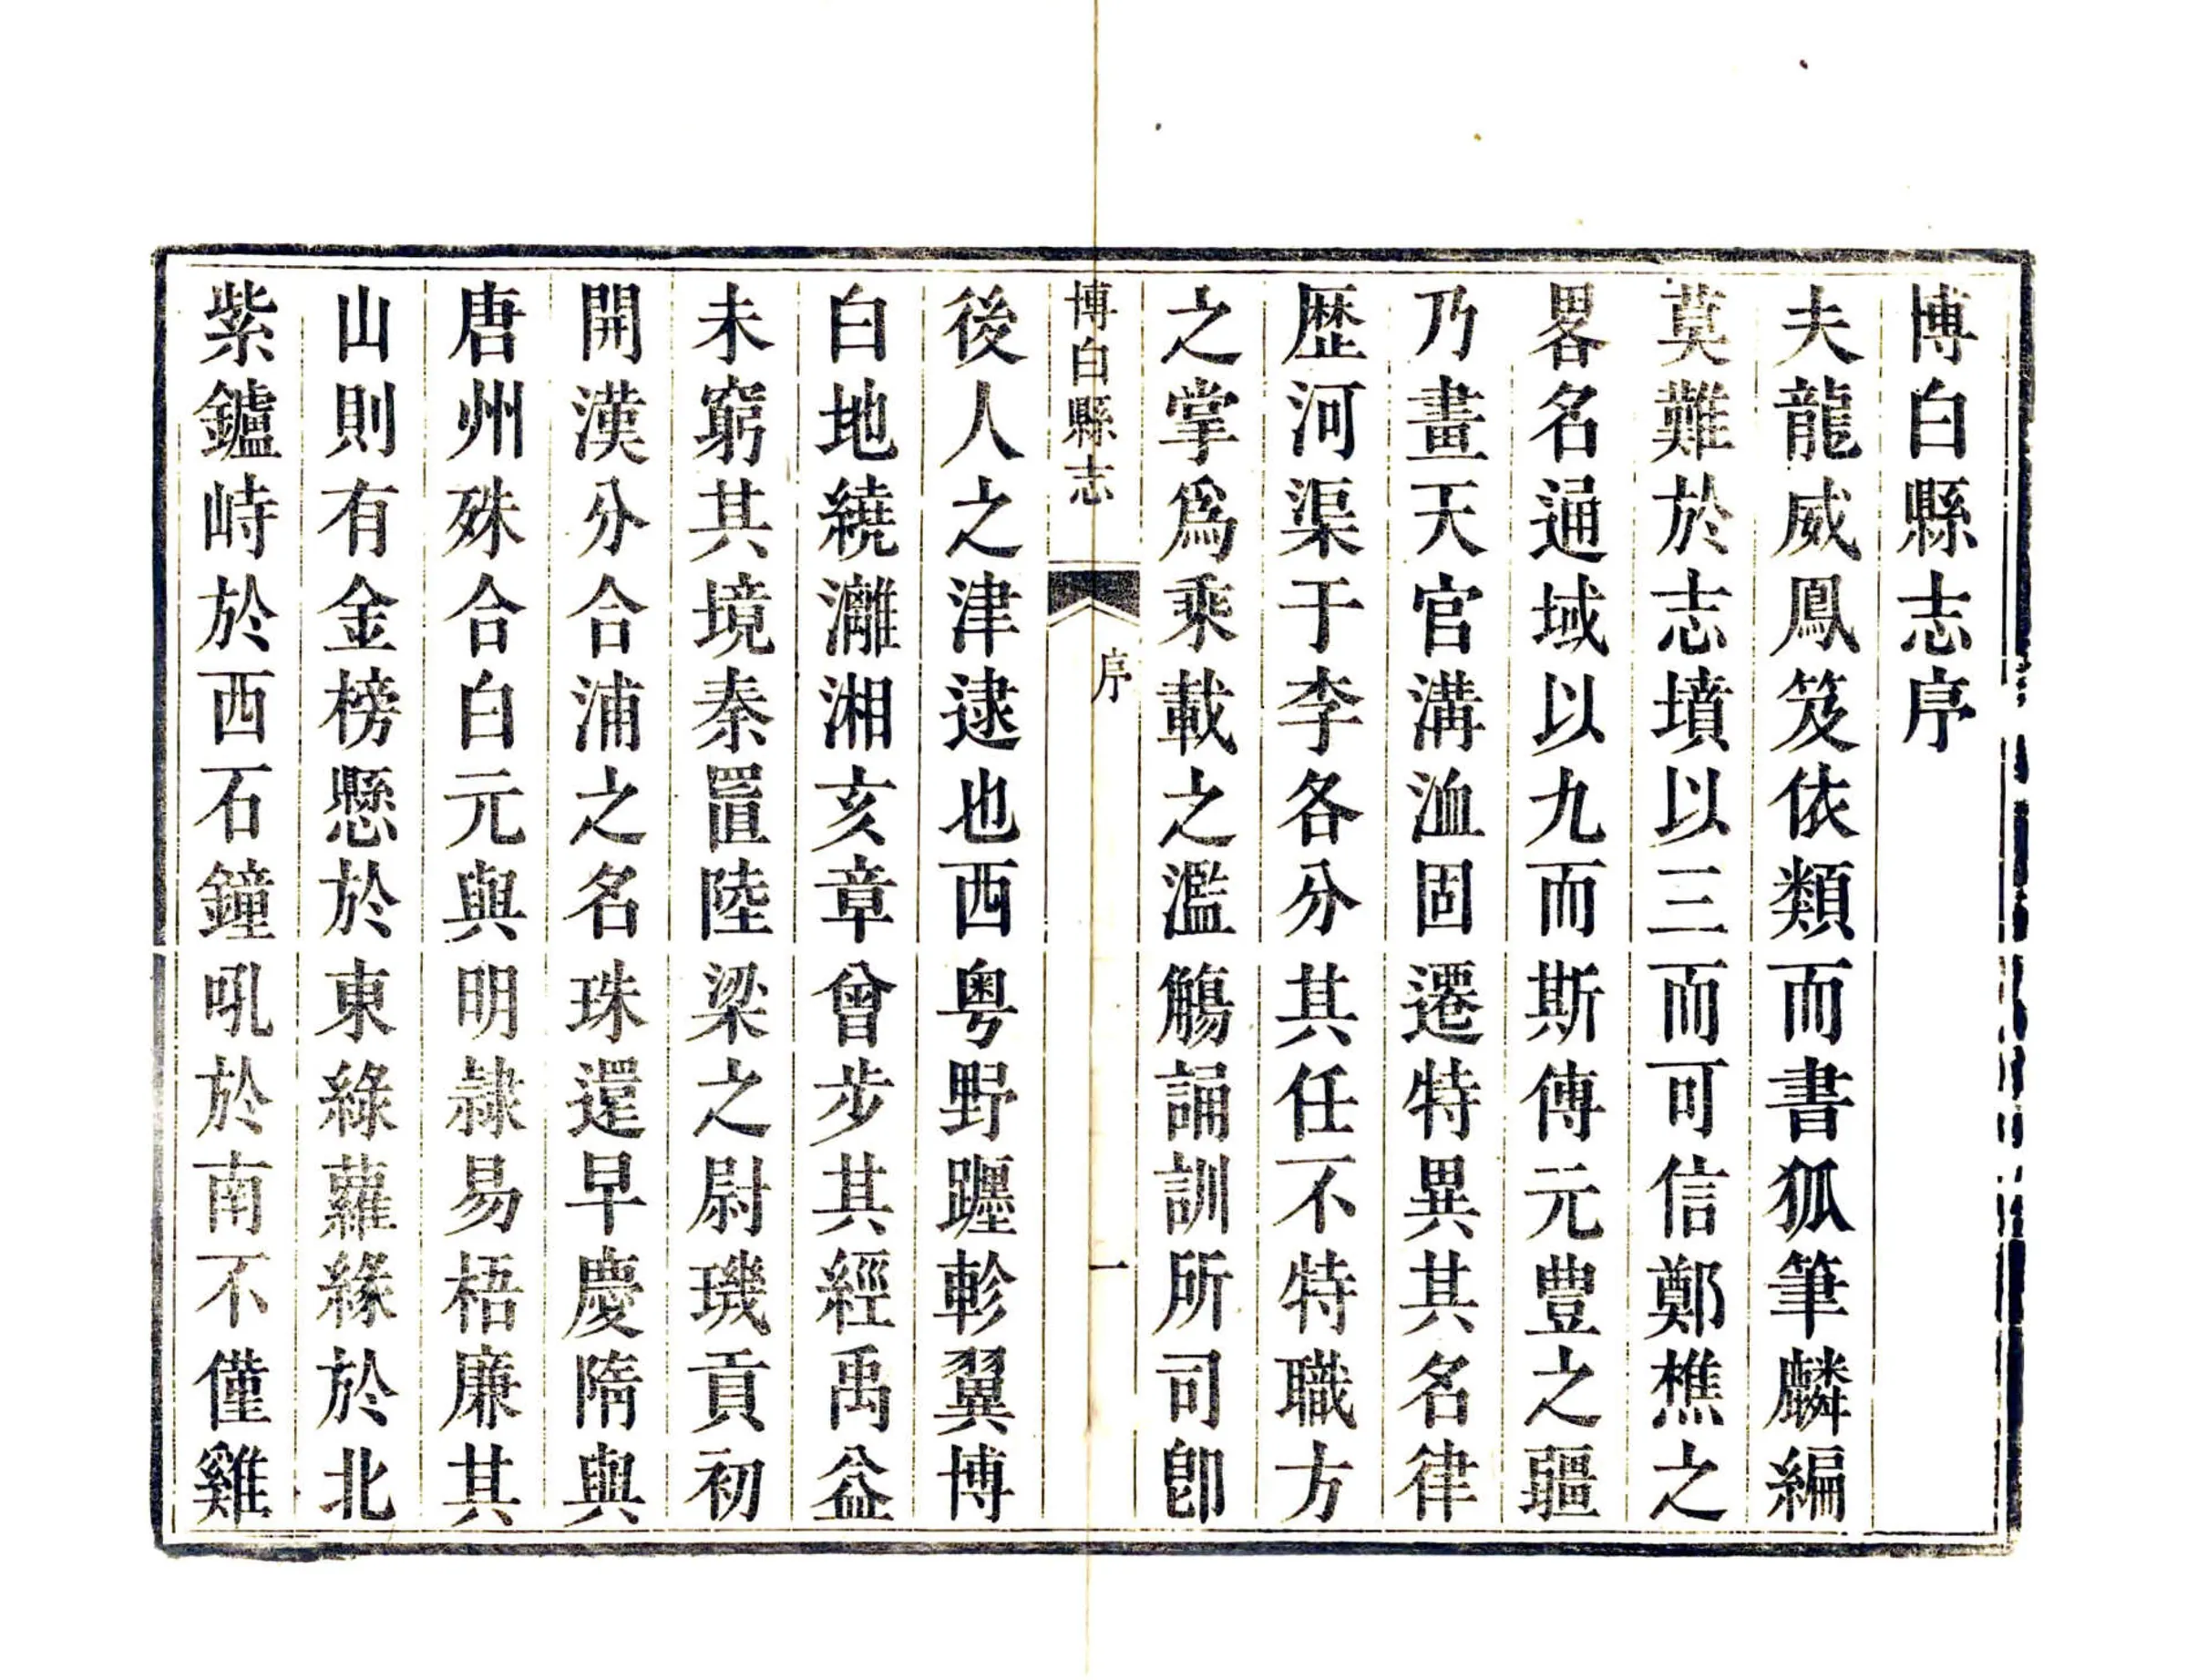 博白縣志序
夫龍威鳳笈依類而書狐筆麟編
莫難於志墳以三而可信鄭樵之
畧名通域以九而斯傳元豊之疆
乃畫天官溝洫固遷特異其名律
歷河渠于李各分其任不特職方
之掌爲乘載之濫觴誦訓所司卽
博白縣志
序
一
後人之津逮也西粤野躔軫翼博
白地繞灕湘亥章曾步其經禹益
未窮其境秦置陸梁之尉璣貢初
開漢分合浦之名珠還早慶隋與
唐州殊合白元與明隷易梧廉其
山則有金榜懸於東綠蘿緣於北
紫鑪峙於西石鐘吼於南不僅雞